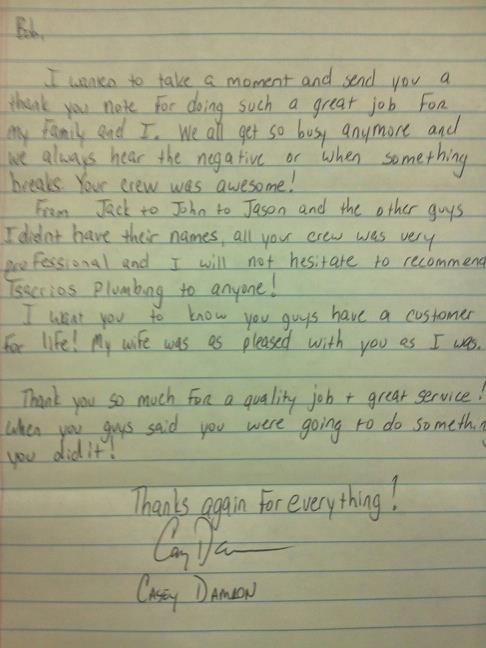 Bob,
I wanted to take a moment and send you a
thank you note for doing such a great job For
my Family and I. We all get so busy anymore and
we always hear the negative or when something
breaks. Your crew was awesome!
From Jack to John to Jason and the other guys
I didnt have their names, all your crew was very
professional and I will not hesitate to recommend
Plumbing to anyone!
I want you to know you guys have a customer
for life! My wife was as pleased with you as I was.
Thank you so much For a quality job + great service!
when you guys said you were going to do somethin
you did it!
Thanks again For everything!
CASEY